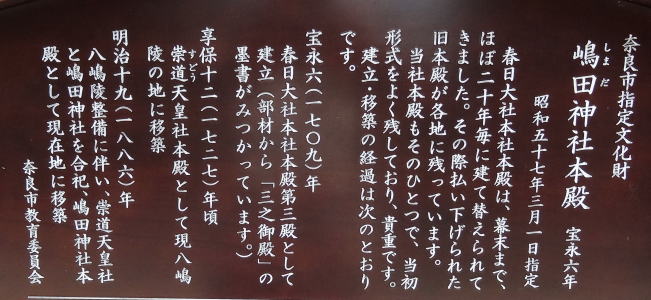 奈良市指定文化財
嶋田神社本殿 宝永六年
しまだ
昭和五十七年三月一日指定
春日大社本社本殿は、幕末まで、
ほぼ二十年毎に建て替えられて
きました。その際払い下げられた
旧本殿が各地に残っています。
当社本殿もそのひとつで、当初
形式をよく残しており、貴重です。
建立・移築の経過は次のとおり
です。
宝永六(一七〇九)年
春日大社本社本殿第三殿として
建立(部材から「三之御殿」の
墨書がみつかっています。)
享保十二(一七二七)年頃
崇道天皇社本殿として現八嶋
すどう
陵の地に移築
明治十九(一八八六)年
八嶋陵整備に伴い、崇道天皇社
と嶋田神社を合祀、嶋田神社本
殿として現在地に移築
奈良市教育委員会